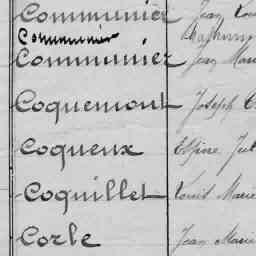 Communier Jean Lou
Communier
Communier Jean Mari
Coquemont Joseph C
Coqueux Elpine Jul
Coquillet Louis Marie
Corle Jean Marie